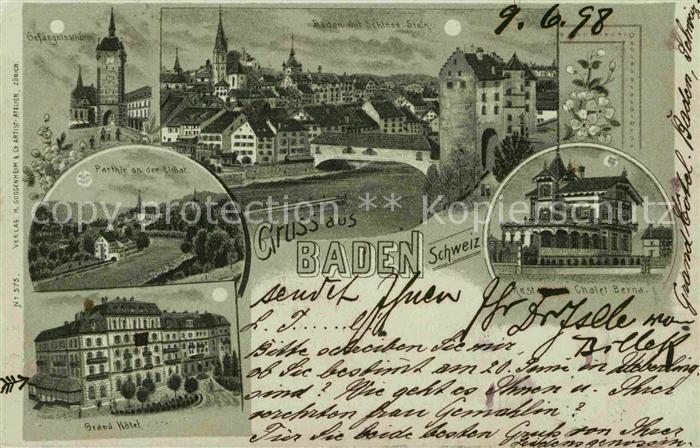 9. 6. 98
Baden mit Schloss Stein.
Gefängnissthurm.
Parthie an der Limat.
Gruss aus
BADEN
Schweiz
Restaurant Chalet Berna.
Grand Hôtel
No 375. VERLAG H. GUGGENHEIM & Co ARTIST-ATELIER, ZÜRICH.
copy protection · Kopierschutz
sendet Ihnen Ihr
Bitte schreiben Sie mir,
ob Sie bestimmt am 20. Juni in
sind? Wie geht es Ihnen u. Ihrer
verehrten Frau Gemahlin?
Für Sie beide besten Gruss von Ihrer
Grand Hôtel Baden, Schweiz